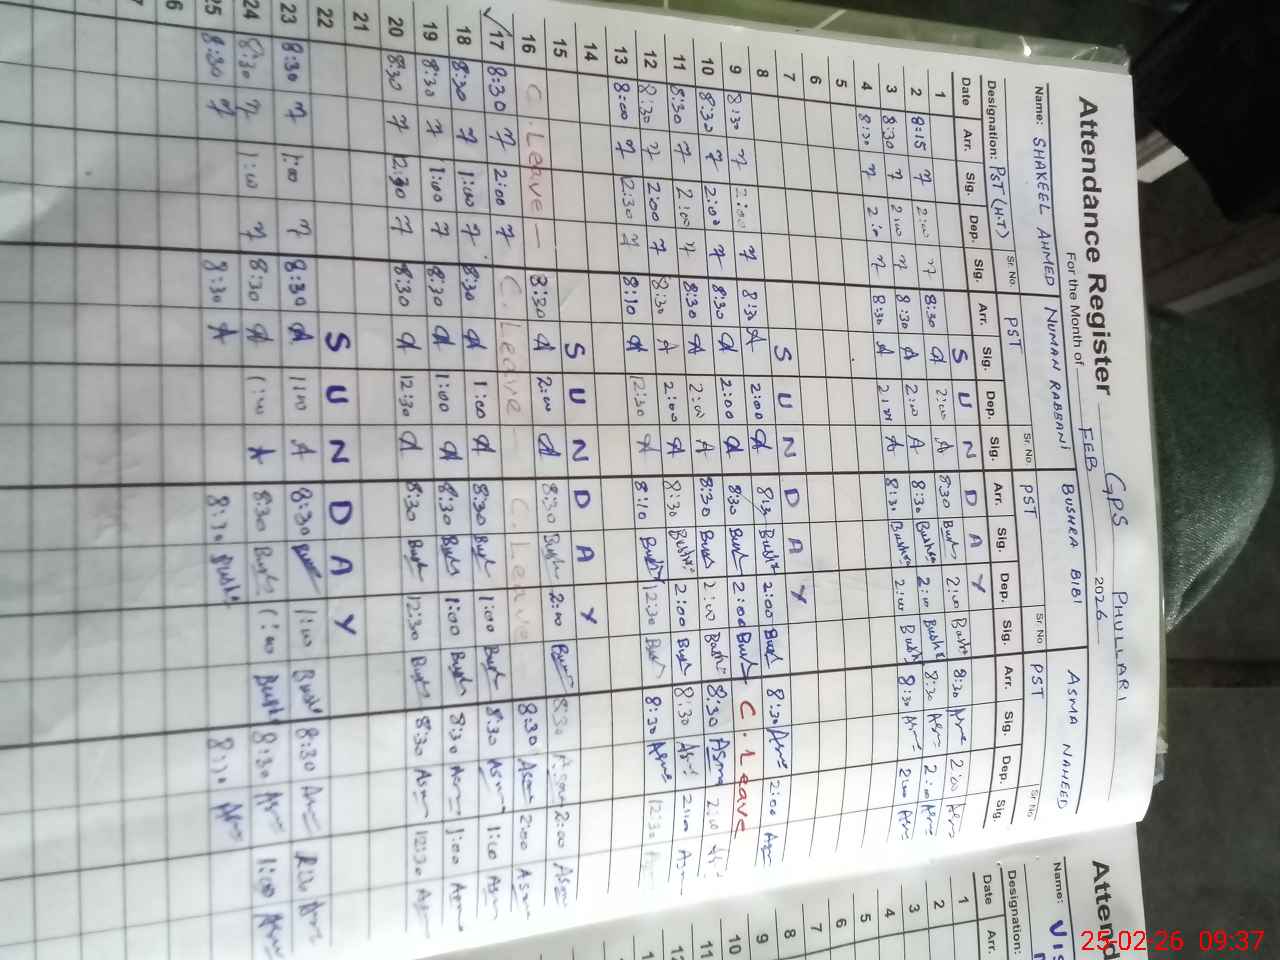 Attendance Register GPS PHULLARI
For the Month of FEB 2026
Name: SHAKEEL AHMED NUMAN RABBANI BUSHRA BIBI ASMA NAHEED
Designation: PST (H.T) Sr. No. PST Sr. No. PST Sr. No. PST Sr. No.
Date Arr. Sig. Dep. Sig. Arr. Sig. Dep. Sig. Arr. Sig. Dep. Sig. Arr. Sig. Dep. Sig.
1 S U N D A Y
2 8:15 2:00 8:30 A 2:00 A 8:30 Bush 2:00 Bush 8:30 Asm 2:00 Asm
3 8:30 2:00 8:30 A 2:00 A 8:30 Bush 2:00 Bush 8:30 Asm 2:00 Asm
4 8:30 2:00 8:30 A 2:00 A 8:30 Bush 2:00 Bush 8:30 Asm 2:00 Asm
5
6
7
8 S U N D A Y
9 8:30 2:00 8:30 A 2:00 A 8:30 Bush 2:00 Bush 8:30 Asm 2:00 Asm
10 8:30 2:00 8:30 A 2:00 A 8:30 Bush 2:00 Bush C. Leave
11 8:30 2:00 8:30 A 2:00 A 8:30 Bush 2:00 Bush 8:30 Asma 2:00
12 8:30 2:00 8:30 A 2:00 A 8:30 Bush 2:00 Bush 8:30 Asm 2:00 Asm
13 8:00 2:30 8:10 A 12:30 A 8:10 Bush 12:30 Bush 8:30 Asma 12:30
14
15 S U N D A Y
16 C. Leave 8:30 A 2:00 A 8:30 Bush 2:00 Bush 8:30 Asm 2:00 Asm
17 8:30 2:00 C. Leave C. Leave 8:30 Asm 2:00 Asm
18 8:30 1:00 8:30 A 1:00 A 8:30 Bush 1:00 Bush 8:30 Asm 1:00 Asm
19 8:30 1:00 8:30 A 1:00 A 8:30 Bush 1:00 Bush 8:30 Asm 1:00 Asm
20 8:30 2:30 8:30 A 12:30 A 8:30 Bush 12:30 Bush 8:30 Asm 12:30 Asm
21
22 S U N D A Y
23 8:30 1:00 8:30 A 1:00 A 8:30 1:00 Bush 8:30 Asm
24 8:30 1:00 8:30 A 1:00 A 8:30 Bush 1:00 Bush 8:30 Asm 1:00 Asm
25 8:30 8:30 A 8:30 Bush 8:30 Asm
Attend
Name:
Designation:
Date Arr.
1
2
3
4
5
6
7
8
9
10
11
12
25-02-26 09:37